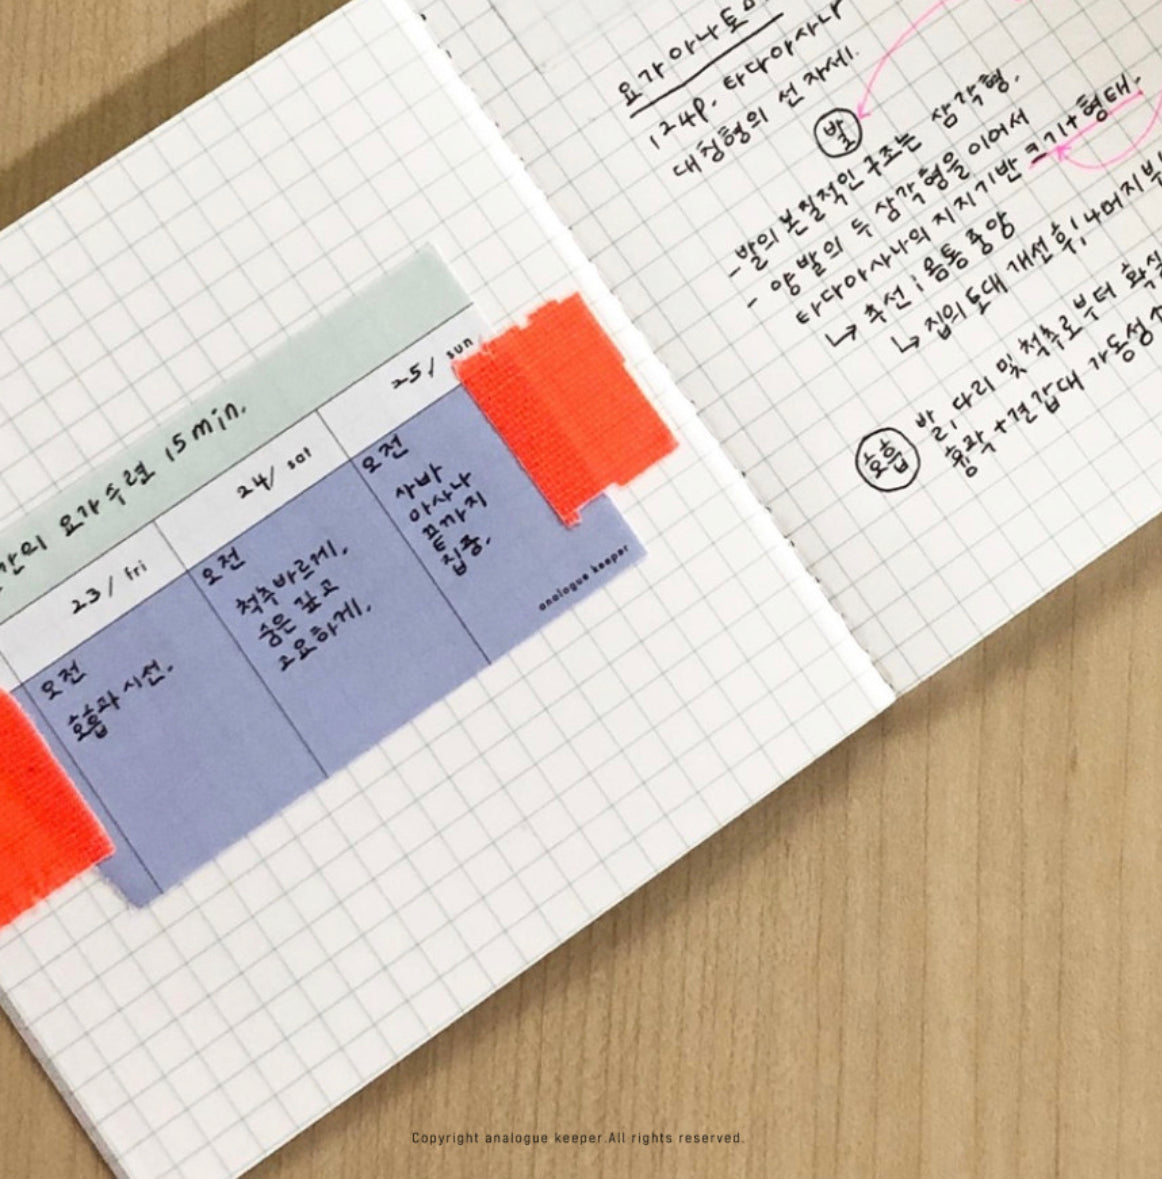 요가수련 15min.
23/ fri
오전
호흡과 시선.
24/ sat
오전
척추바르게.
숨은 깊고
고요하게.
25/ sun
오전
사바
아사나
끝까지
집중.
analogue keeper
요가아나토미
124p. 타다아사나
대칭형의 선 자세.
발
-발의 본질적인 구조는 삼각형.
- 양발의 두 삼각형을 이어서
타다아사나의 지지기반 크기+형태.
↳ 추선; 몸통중앙
↳ 집의 토대 개선 후, 나머지
호흡
발, 다리 및 척추로부터
흉곽+견갑대 가동성
Copyright analogue keeper.All rights reserved.